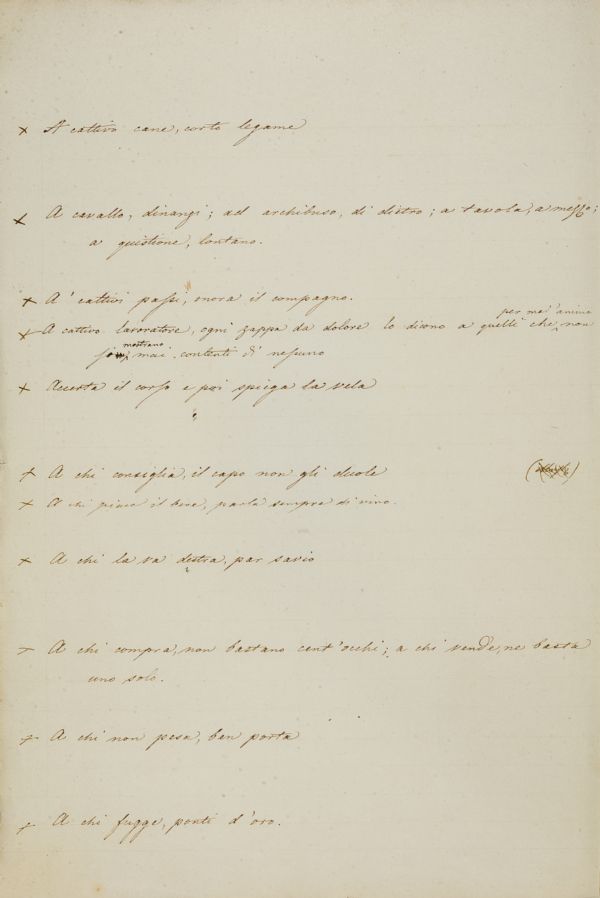 × A cattivo cane, corto legame
× A cavallo, dinanzi; ad archibuso, di dietro; a tavola, a mezzo;
a quistione, lontano.
× A' cattivi passi, onora il compagno.
per mal'animo
× A cattivo lavoratore, ogni zappa da dolore lo dicono a quelli che non
mostrano
mai contenti di nessuno
× Accerta il corso e poi spiega la vela
× A chi consiglia, il capo non gli duole
× A chi piace il bere, parla sempre di vino.
× A chi la va destra, par savio
× A chi compra, non bastano cent'occhi; a chi vende, ne basta
uno solo.
× A chi non pesa, ben porta
× A chi fugge, ponti d'oro.